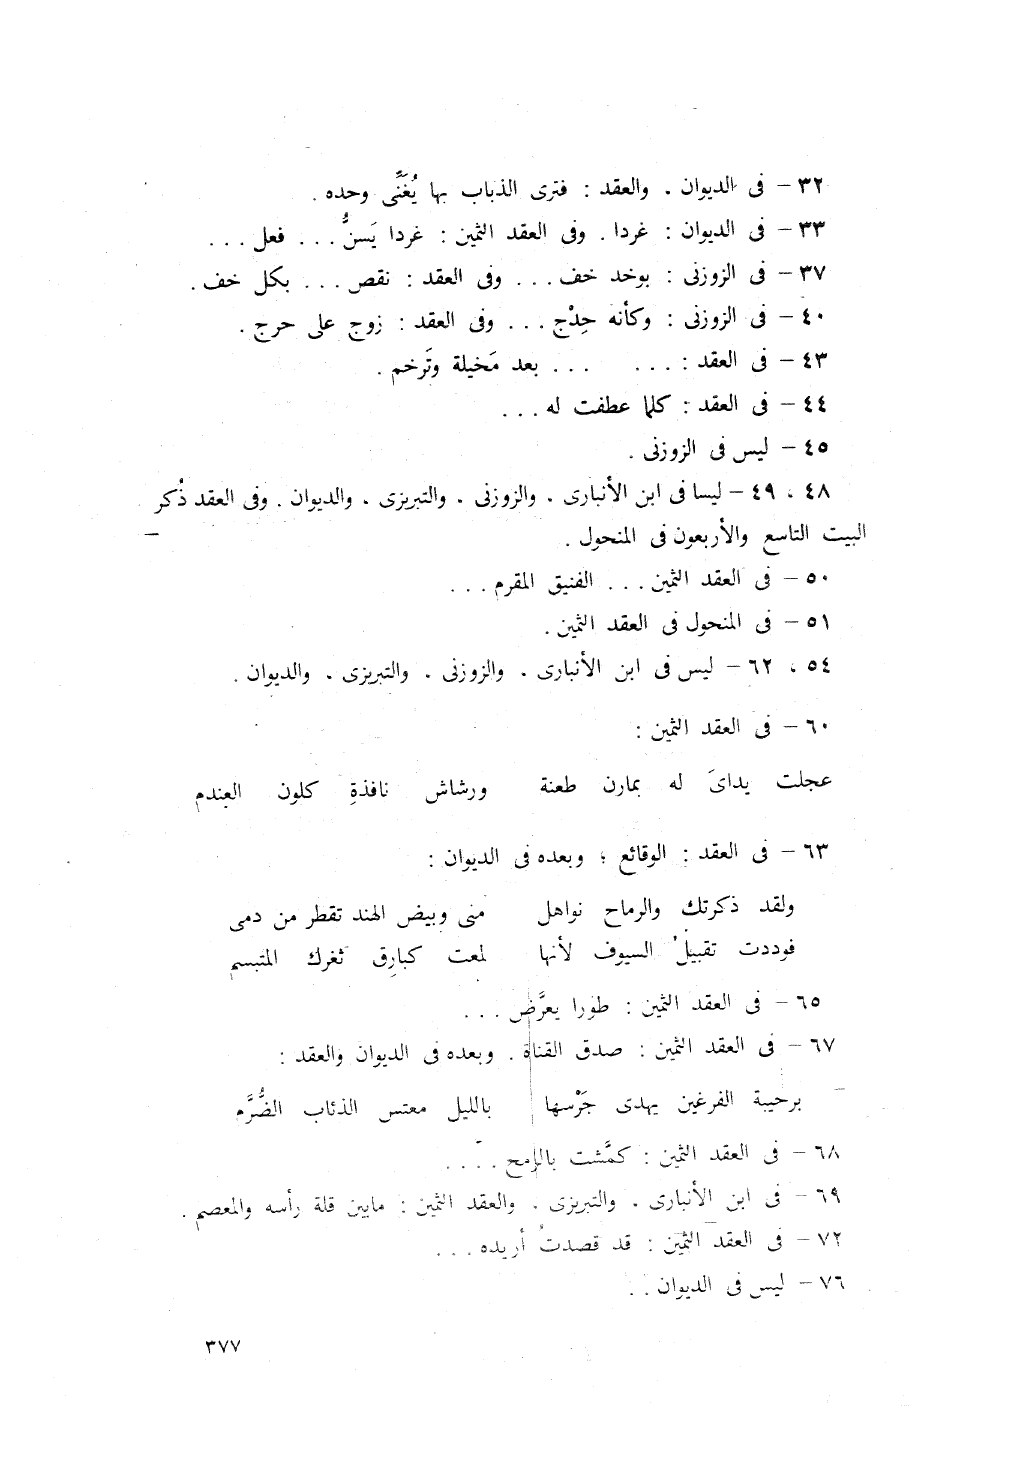 ٣٢ – فى الديوان . والعقد : فترى الذباب بها يُغَنَّى وحده .
٣٣ – فى الديوان : غردا . وفى العقد الثمين : غردا يَسنُّ . . . فعل . . .
٣٧ – فى الزوزنى : بوخد خف . . . وفى العقد : نقص . . . بكل خف .
٤٠ – فى الزوزنى : وكأنه حِدْج . . . وفى العقد : زوج على حرج .
٤٣ – فى العقد : . . . . . . بعد مَخيلة وتَرخم .
٤٤ – فى العقد : كلما عطفت له . . .
٤٥ – ليس فى الزوزنى .
٤٨ ، ٤٩ – ليسا فى ابن الأنبارى . والزوزنى . والتبريزى . والديوان . وفى العقد ذُكر
البيت التاسع والأربعون فى المنحول .
٥٠ – فى العقد الثمين . . . الفنيق المقرم . . .
٥١ – فى المنحول فى العقد الثمين .
٥٤ ، ٦٢ – ليس فى ابن الأنبارى . والزوزنى . والتبريزى . والديوان .
٦٠ – فى العقد الثمين :
عجلت يداىَ له بمارن طعنة ورشاش نافذةِ كلون العندم
٦٣ – فى العقد : الوقائع ؛ وبعده فى الديوان :
ولقد ذكرتك والرماح نواهل منى وبيض الهند تقطر من دمى
فوددت تقبيل السيوف لأنها لمعت كبارِق ثغرك المتبسم
٦٥ – فى العقد الثمين : طورا يعرَّض . . .
٦٧ – فى العقد الثمين : صدق القناة . وبعده فى الديوان والعقد :
برحيبة الفرغين يهدى جَرْسها بالليل معتس الذئاب الضُّرَّم
٦٨ – فى العقد الثمين : كمَّشت بالرمح . . . .
٦٩ – فى ابن الأنبارى . والتبريزى . والعقد الثمين : مابين قلة رأسه والمعصم .
٧٢ – فى العقد الثمين : قد قصدتُ أريده . . .
٧٦ – ليس فى الديوان . .
٣٧٧